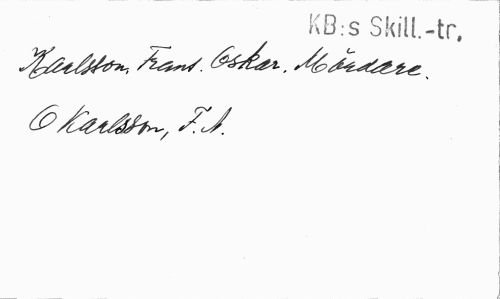 KB:s Skill.-tr.
Karlsson, Frans. Oskar. Mördare.
O Karlsson, F. A.